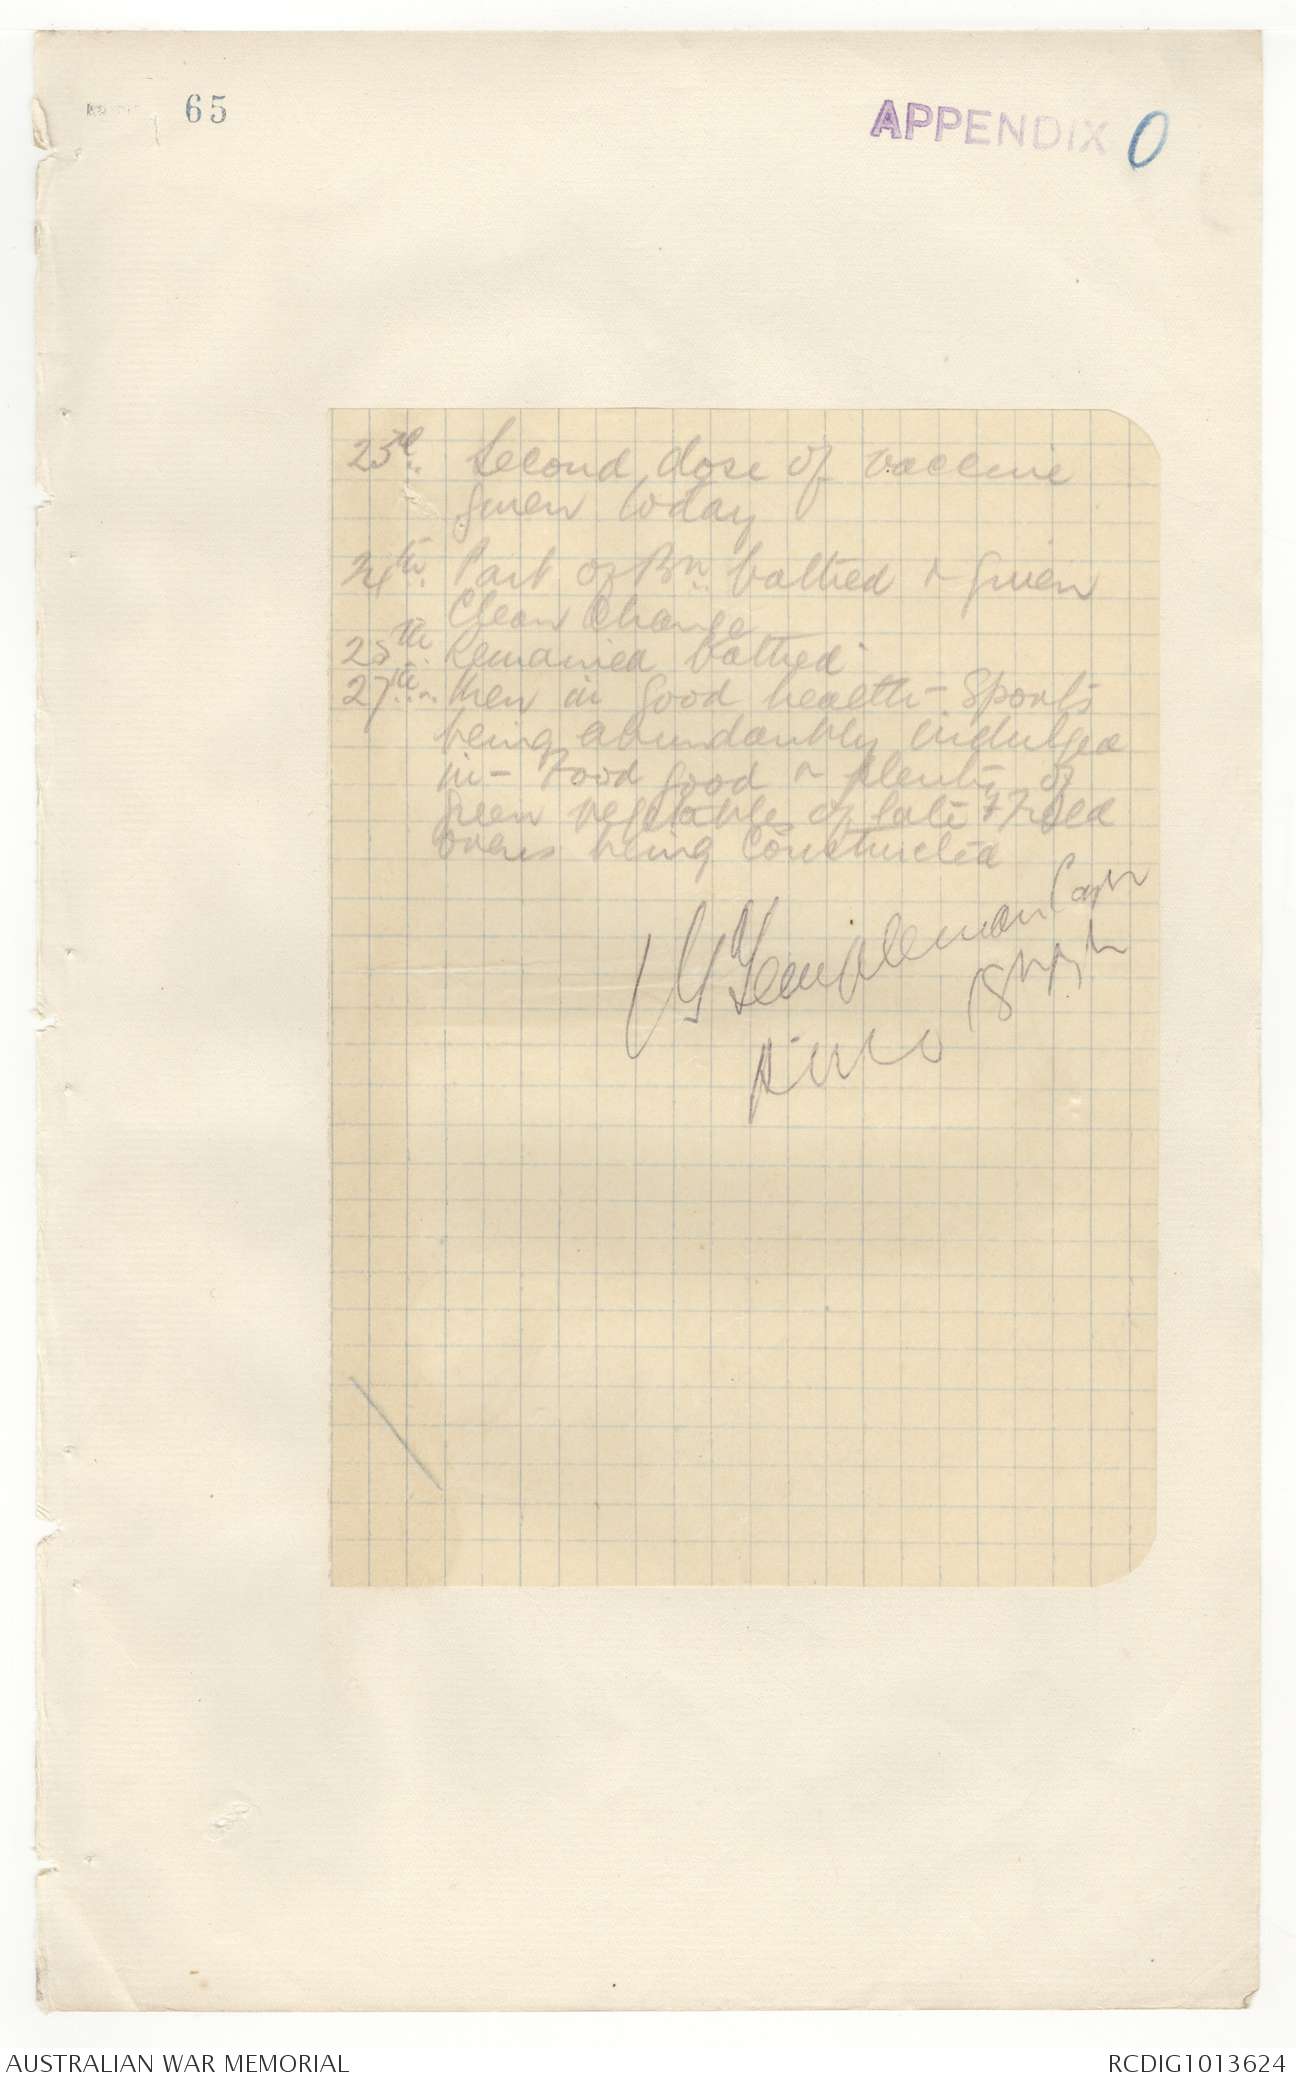 65
APPENDIX O
23rd Second dose of vaccine
given today
24th Part of Bn bathed & given
Clean Change
25th Remained bathed
27th Men in good health - Sports
being abundantly indulged
in - Food good & plenty of
green vegetables of late Field
ovens being Constructed
Templeman Capt
RMO
AUSTRALIAN WAR MEMORIAL
RCDIG1013624